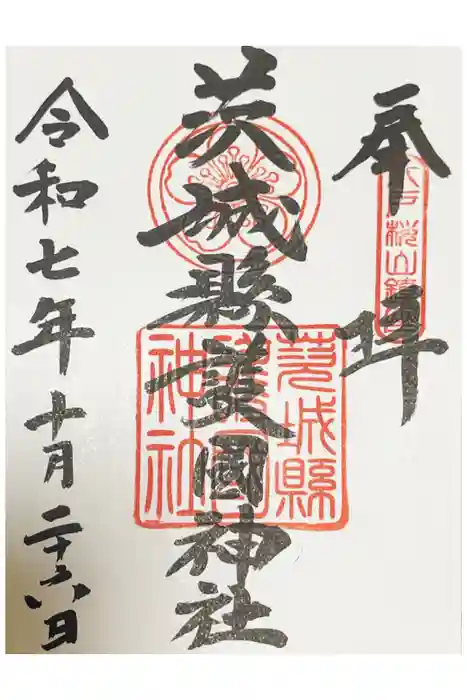 奉拝
水戸桜山鎮座
茨城縣護國神社
茨城縣
護國
神社
令和七年十月二十六日